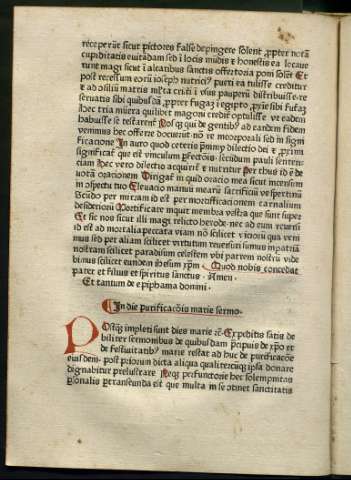 receperūt sicut pictores false depingere solent ꝓpter notā
cupiditatis euitādam sed ī locis mūdis ⁊ honestis ea locaue
runt magi sicut ī altaribus sanctis offertoria poni solēt Et
post recessum eorū ioseph nutrici? pueri ea tulisse creditur
⁊ ad osiliū matris
seruatis sibi quibusdā ꝓpter fugaz ī egipto
hec tria mūera quilibet magorū credit̉ optulisse ve eadem
habuisse se testarent̉ Nos qui de gentibus ad eandem fidem
venimus hec offerre docemur nō re incorporali sed in signi
ficacione In auro quod ceteris p̄minet dilectio dei ⁊ ꝓximi
significat̉ que est vinculum ꝑfectōis secūdum pauli senten
ciam hec vero dilectio acquirit̉ ⁊ nutritur Per thus id ē de
uotā orationem Dirigat̉ in quid oracio mea sicut incensum
in ꝯspectu tuo Eleuacio manuū mearū sacrificiū vespertinū
Tercio per mirram id est per mortificacionem carnalium
desideriorū Mortificate inquit membra vestra que sunt super
Et sic nos sicut illi magi relicto herode nec ad eum reuersi
id est ad mortalia peccata viam nō scilicet viciorū qua veni
mus sed per aliam scilicet virtutum reuersuri sumus in patriā
nostram scilicet paradisum celestem vbi patrem nostrū vide
bimus scilicet eundem ihesum xp̄m Quod nobis concedat
pater et filius et spiritus sanctus Amen
Et tantum de epiphania domini
In die purificacōis marie sermo
Postq̄ impleti sunt dies marie ⁊c̄ Expeditis satis de
biliter sermonibus de quibusdam p̄cipuis de xp̄o et
de festiuitatibꝰ marie restat ad huc de purificacōe
eiusdem post priorum dicta aliqua qualitercūqꝫ ipsa donare
dignabitur prelustrare Neqꝫ prefunctorie hec solempnitas
ꝑsonalis pertranseunda est que multa in se ōtinet sanctitatis